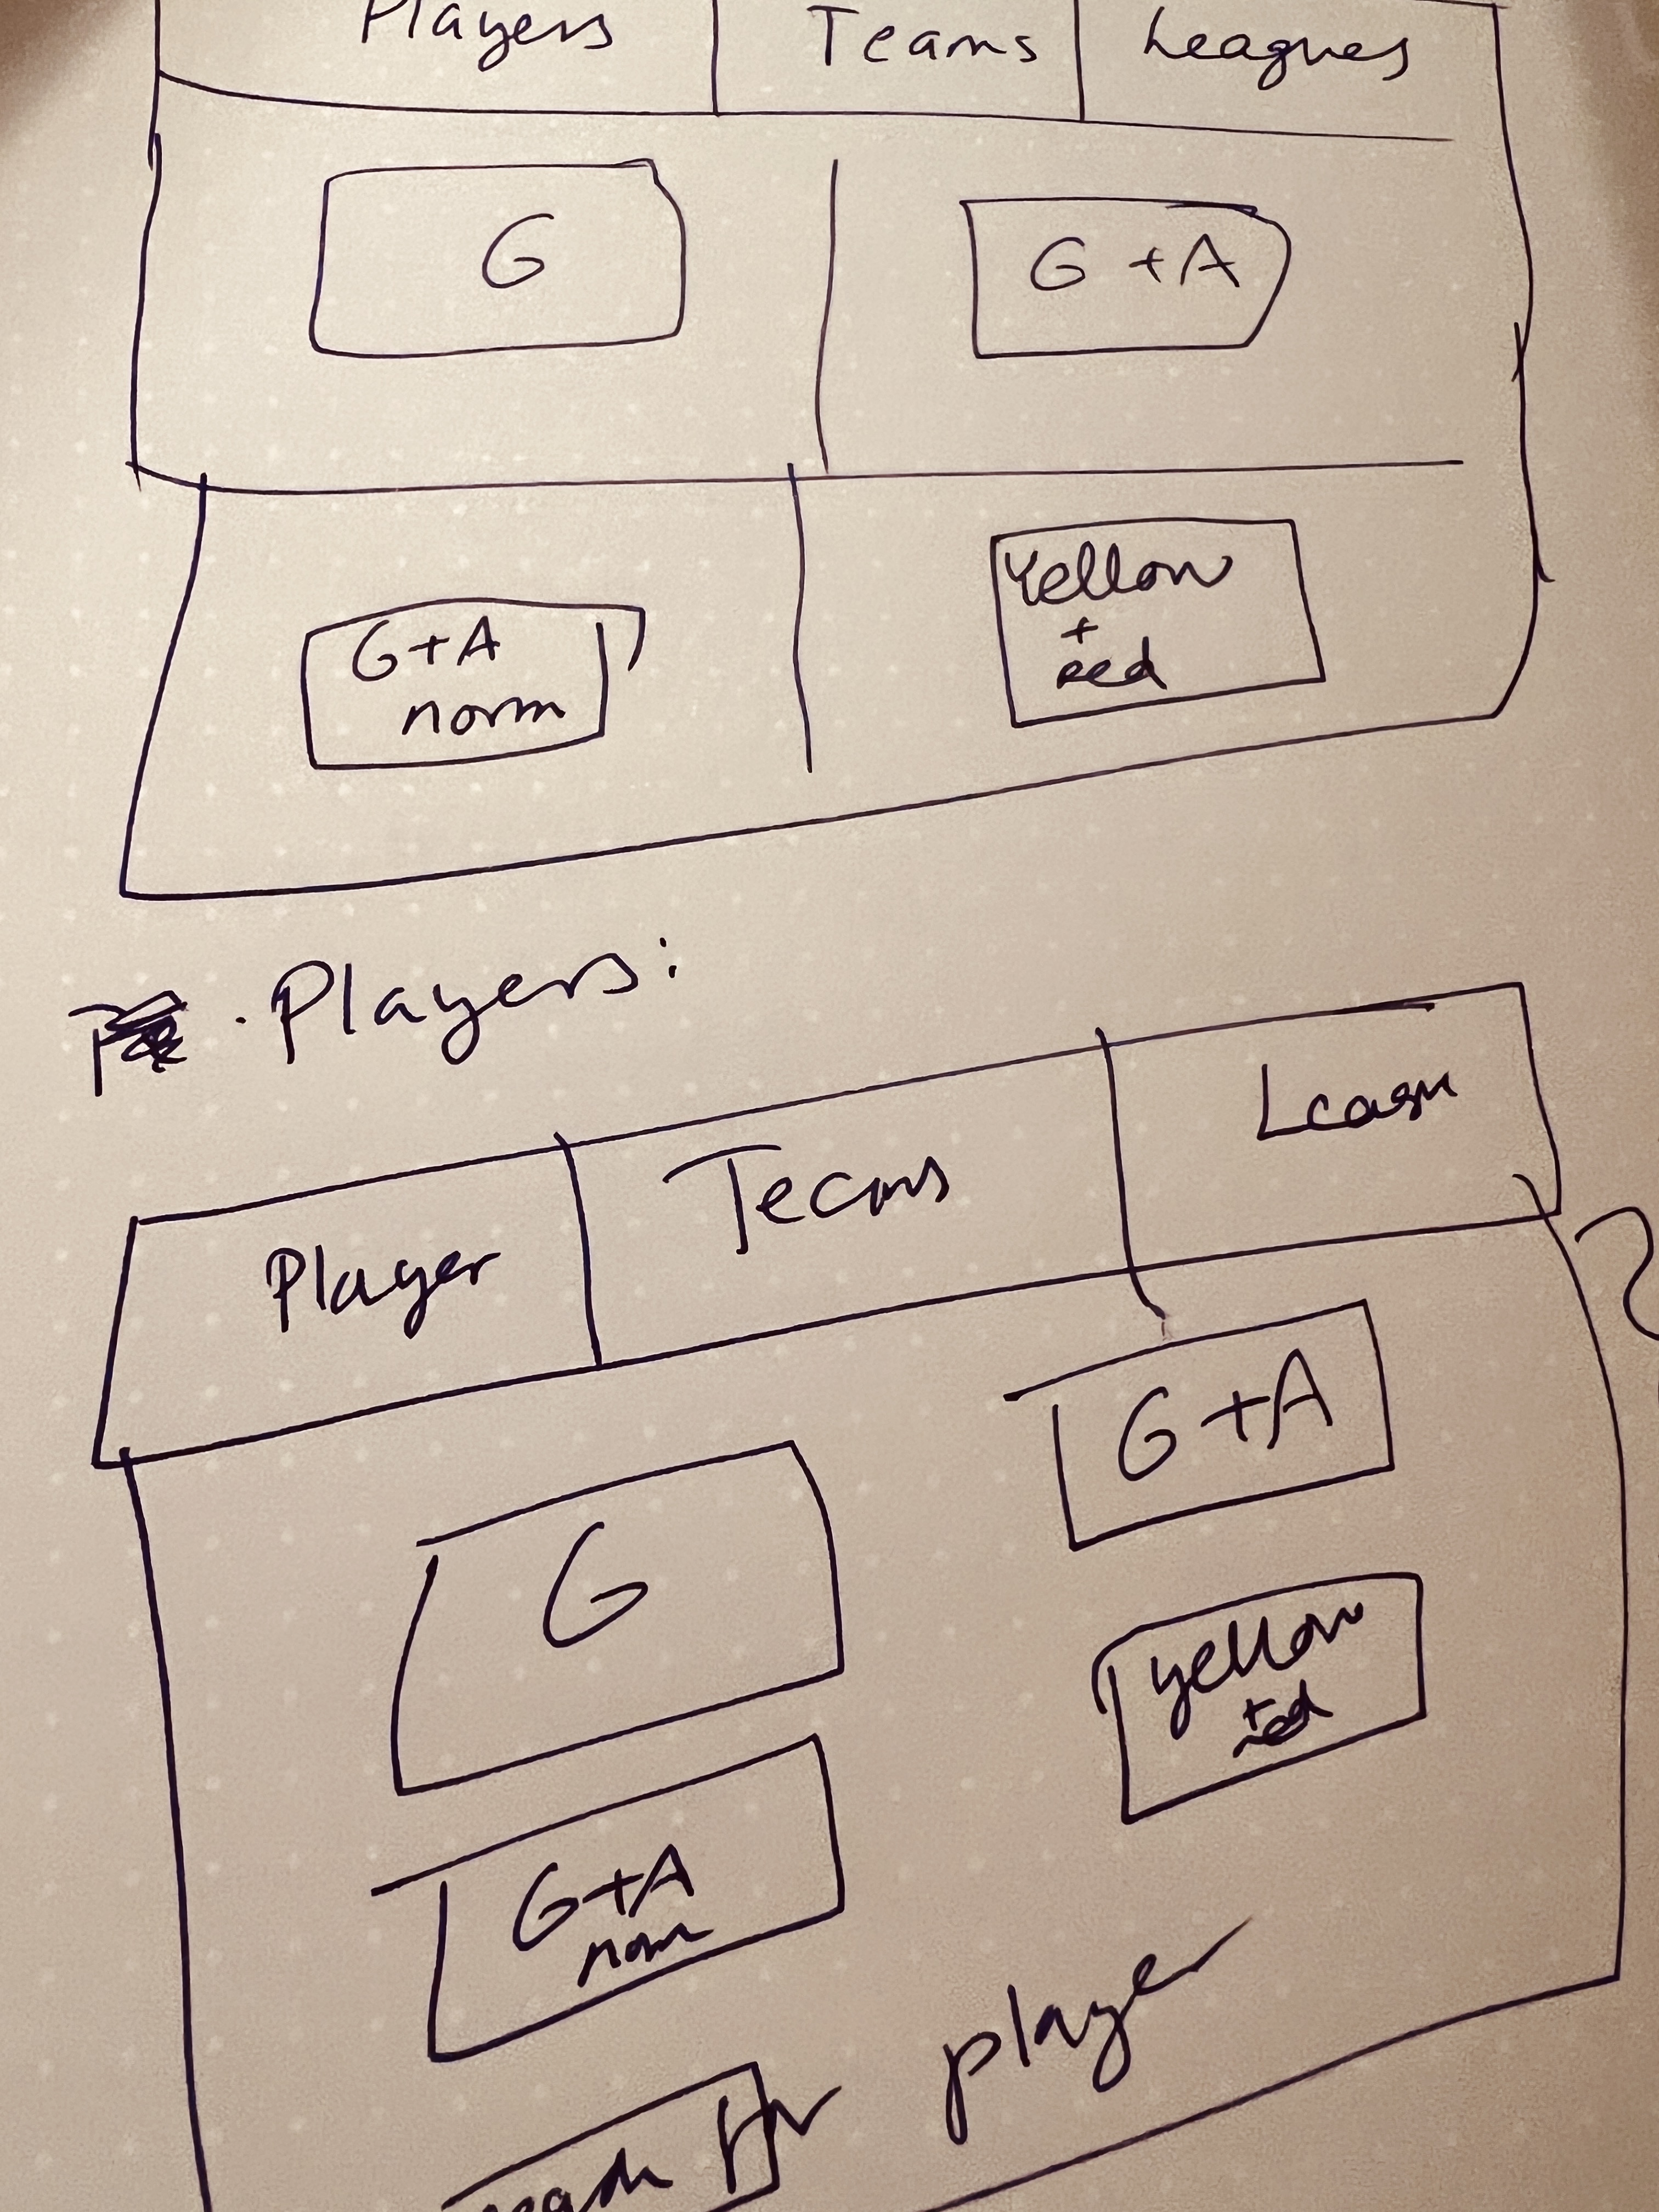 Players Teams Leagues
G G + A
G+A
norm
Yellow
+
red
· Players:
Player Teams Leagu
G+A
G
yellow
+
red
G+A
norm
for player